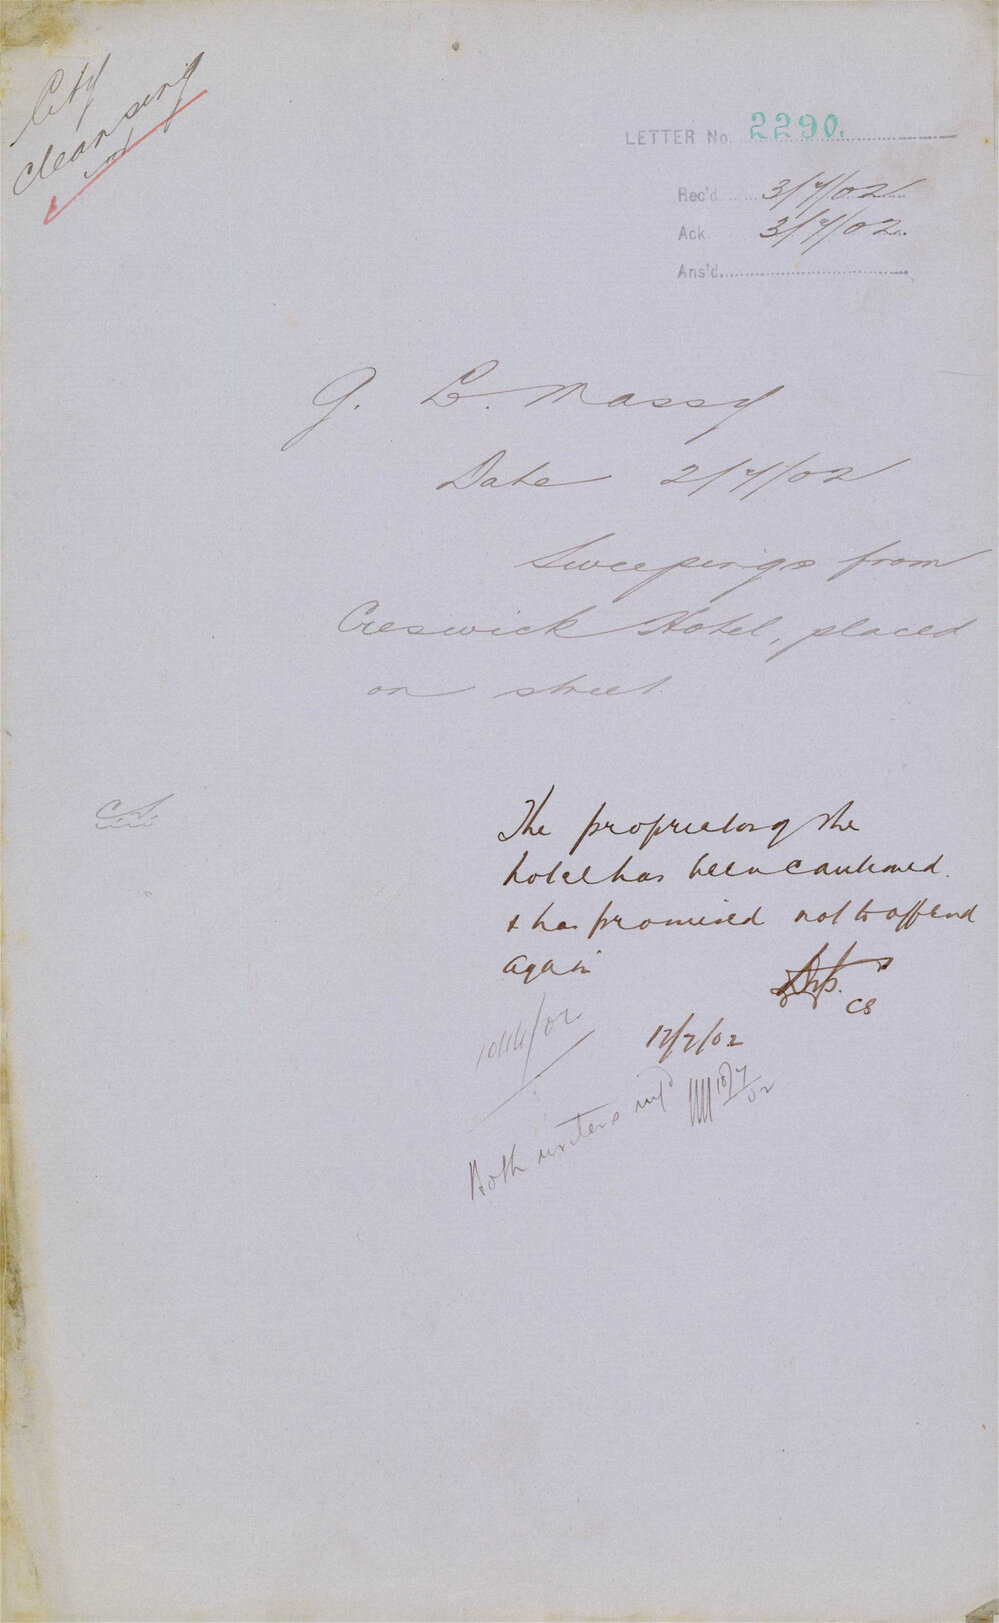 City
cleansing
LETTER No. 2290.
Rec'd 3/7/02
Ack. 3/7/02
Ans'd
G. L. Massy
Date 2/7/02
Sweepings from
Creswick Hotel, placed
on street
CS.
The proprietor of the
hotel has been cautioned
& has promised not to offend
again
CS
17/7/02
Both writers inf'd 18/7/02